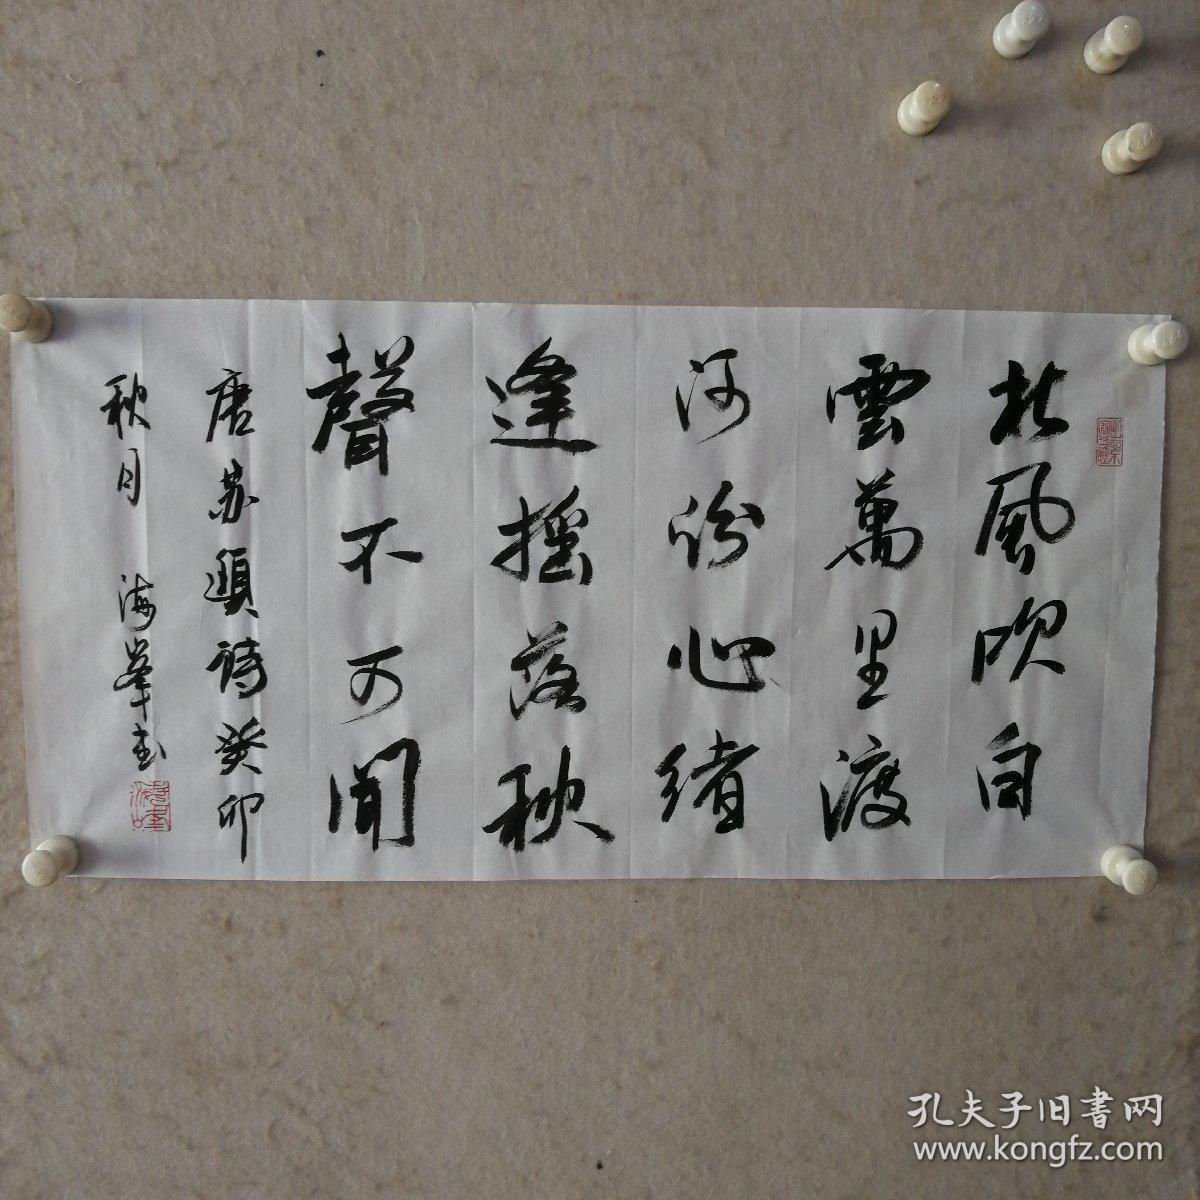 北风吹白
雲萬里渡
河汾心緒
逢摇落秋
聲不可聞
唐苏頲诗癸卯
秋月 海峰书
孔夫子旧書网
www.kongfz.com